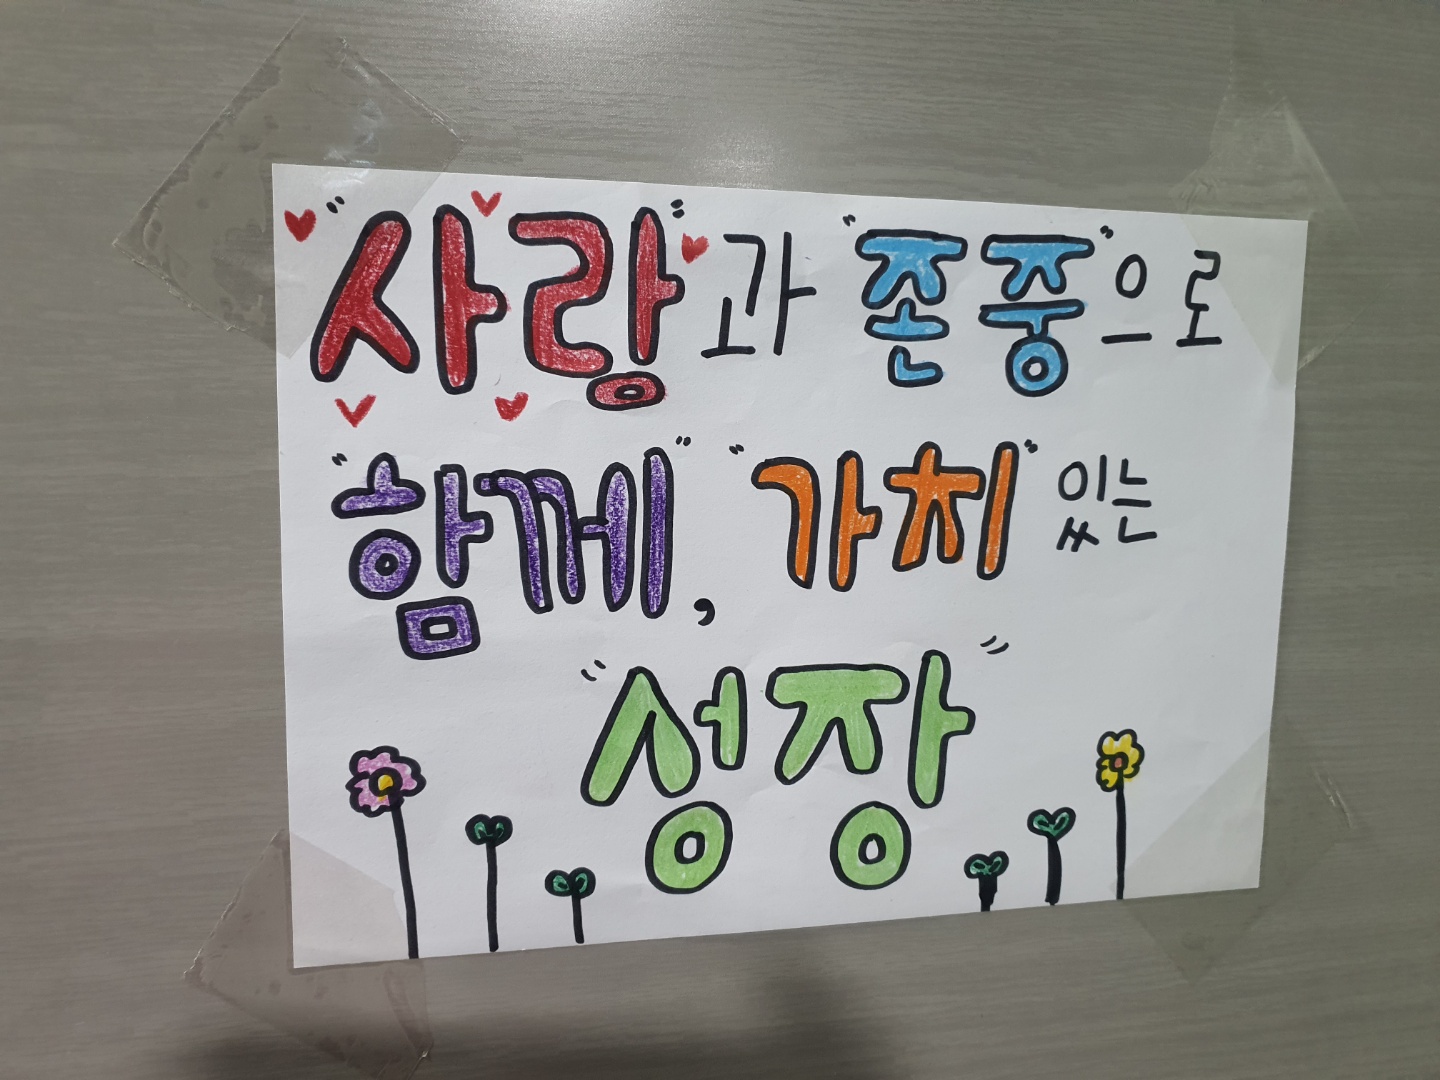 "사랑"과 "존중"으로
"함께", "가치"있는
"성장"